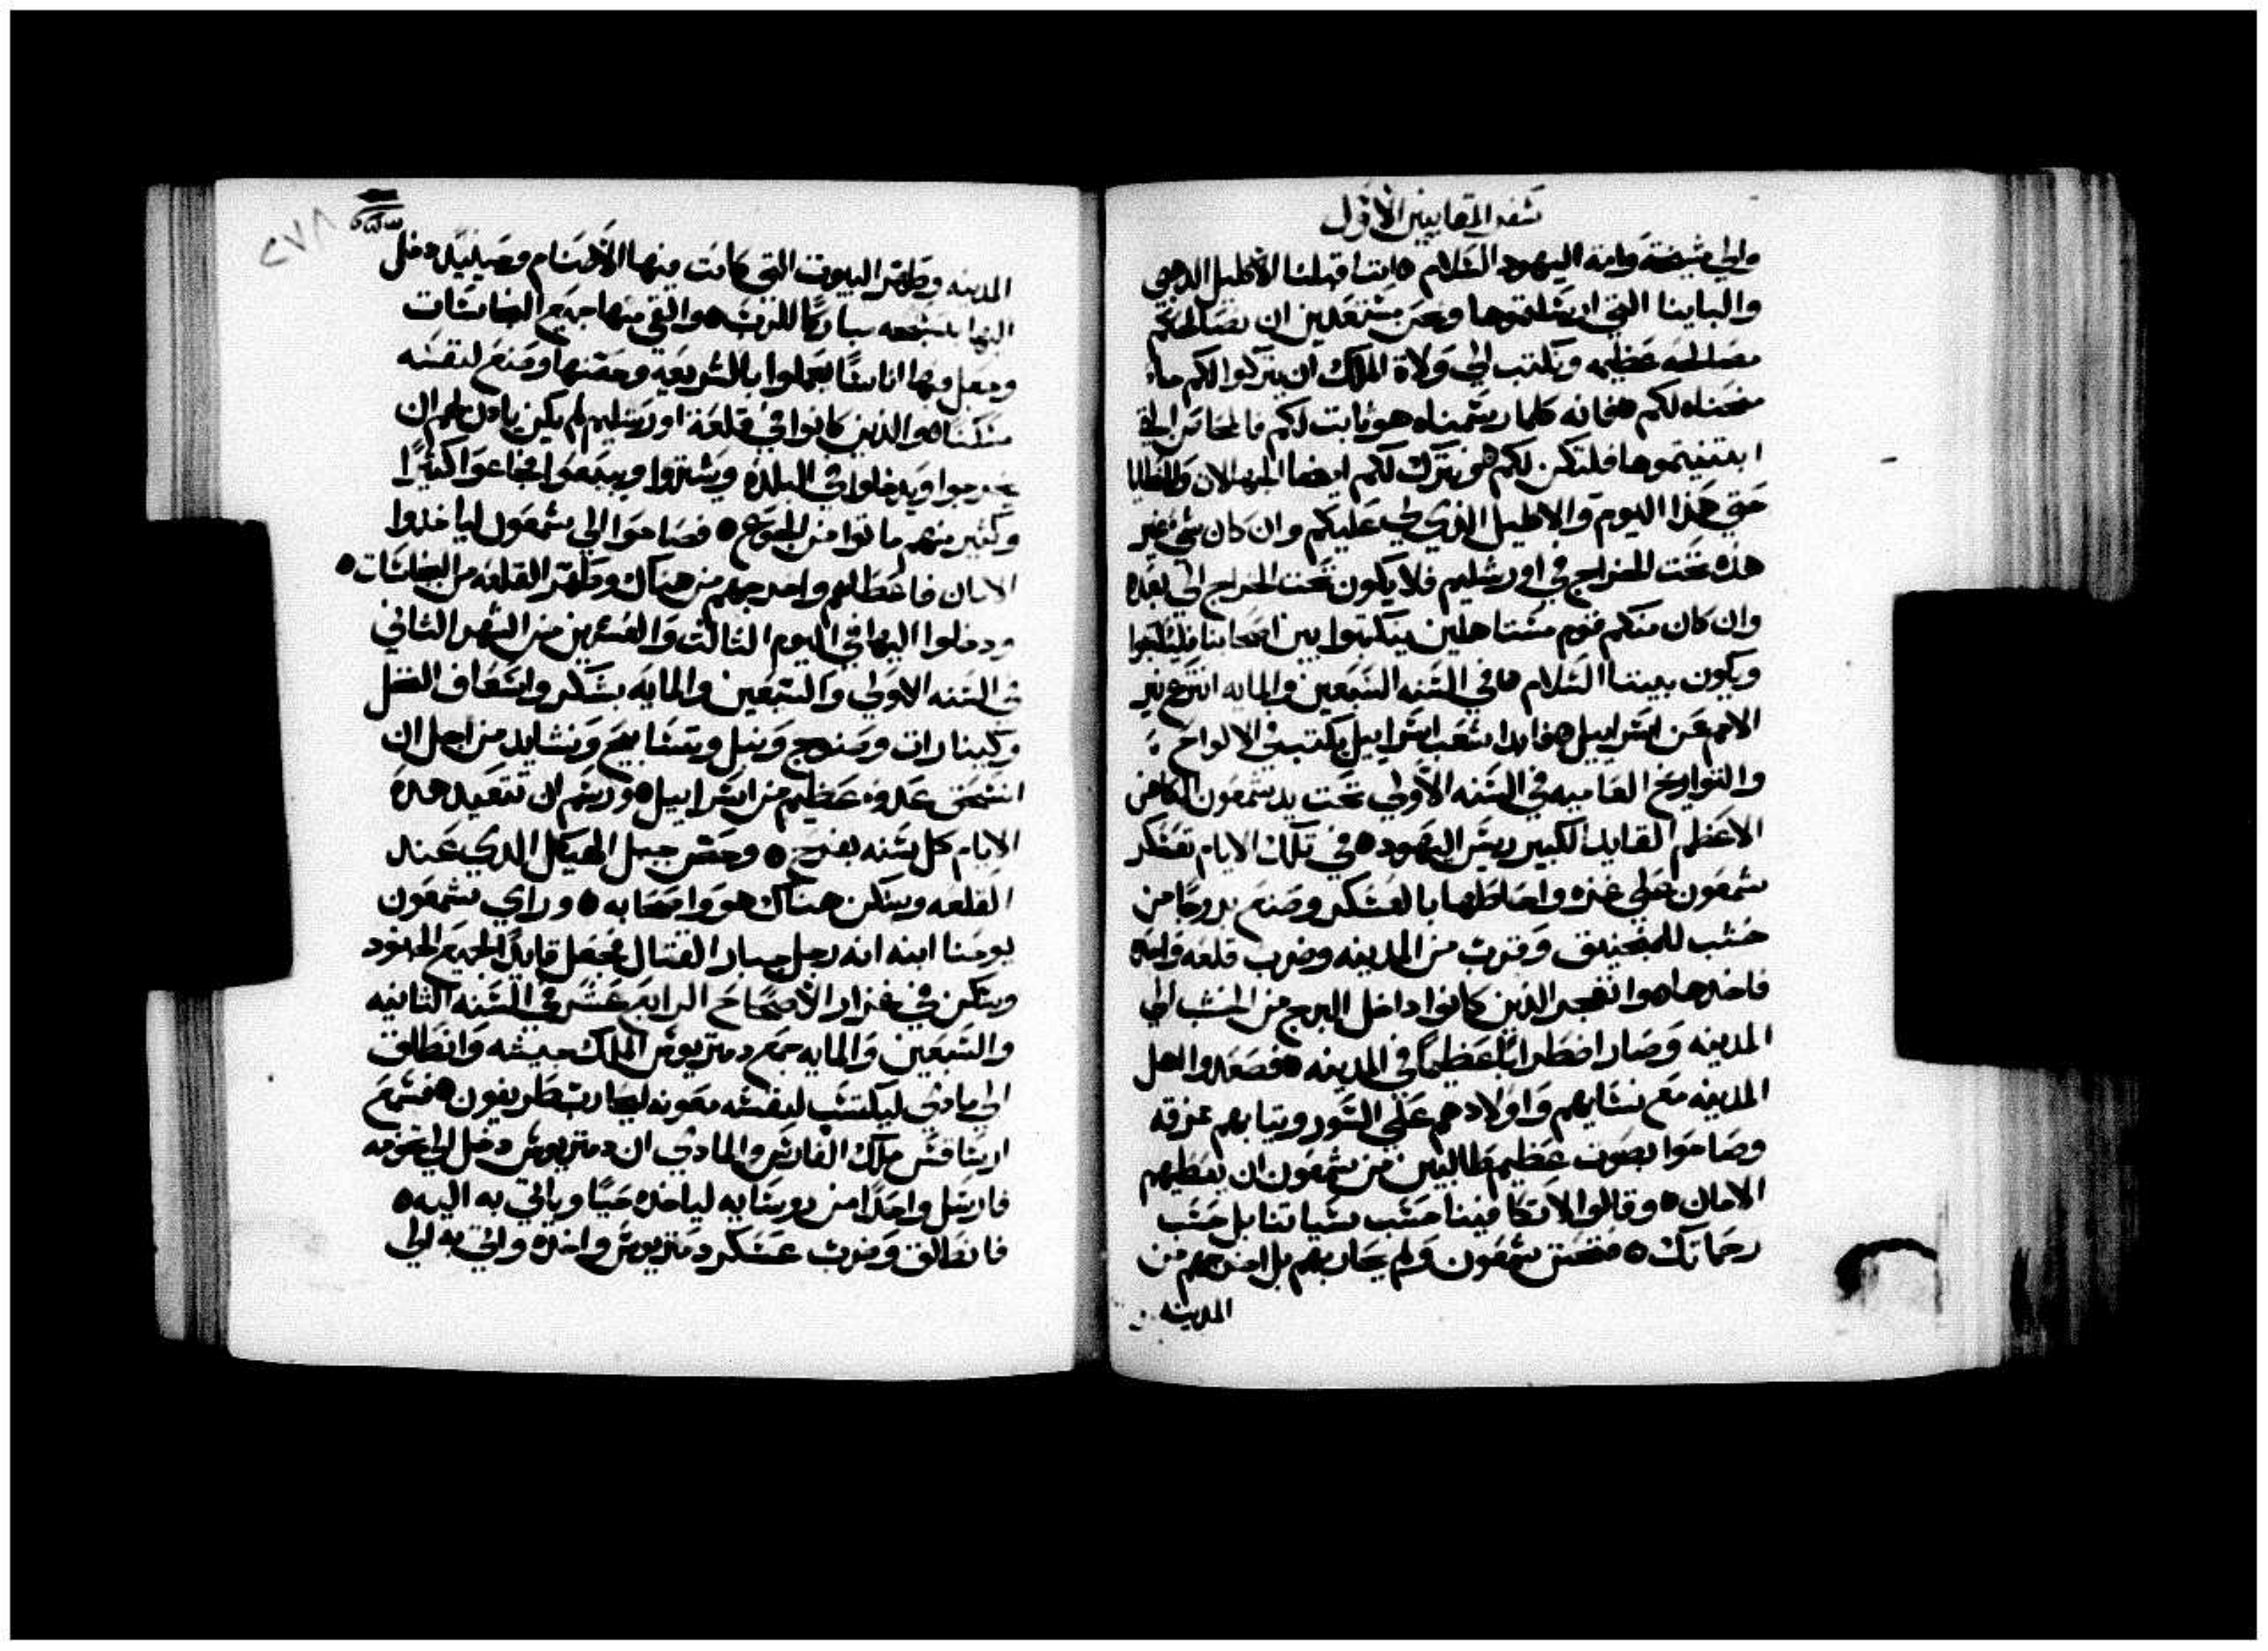 سفر المقابيين الاول
والي مشيخة وامة اليهود السلام ه اننا قبلنا الاكليل الدهبي
والباينا التي ارسلتموها ونحن مستعدين ان نصالحكم
مصالحه عظيمه ونكتب الي ولاة الملك ان يتركوا لكم ما
منحناه لكم ه فانه كلما رسمناه هو ثابت لكم فالمحاصن التي
ابتنيتموها فلتكن لكم ه ونترك لكم ايضا الجهالات والخطايا
حتي هذا اليوم والاكليل الذي لي عليكم وان كان شي غير
هذه تحت الخراج في اورشليم فلا يكون تحت الخراج الي بعده
وان كان منكم قوم مستاهلين يكتبوا بين اصحابنا فليكتبوا
ويكون بيننا السلام ه في السنه السبعين والمايه انتزع نير
الامم عن اسراييل ه فابدا شعب اسراييل يكتب في الالواح
والتواريخ العاميه في السنه الاولي تحت يد شمعون الكاهن
الاعظم القايد الكبير ريس اليهود ه في تلك الايام تعسكر
شمعون علي غزه واحاطها بالعسكر وصنع بروجا من
خشب للمنجنيق وقرب من المدينه وضرب قلعه واحده
فاخدها ه وانفجر الذين كانوا داخل البرج من الخشب الي
المدينه وصار اضطرابا عظيما في المدينه ه فصعدوا اهل
المدينه مع نسايهم واولادهم علي السور وتيابهم مزقه
وصاحوا بصوت عظيم طالبين من شمعون ان يعطيهم
الامان ه وقالوا لا تكافينا حسب سياتنا بل حسب
رحماتك ه فتحنن شمعون ولم يحاربهم بل اخرجهم من
المدينه
٢٧٨
المدينه وطهر البيوت التي كانت فيها الاصنام وحينيد دخل
اليها بتسبحه مباركا للرب ه والقي منها جميع النجاسات
وجعل فيها اناسا يعملوا بالشريعه وحصنها وصنع لنفسه
مسكنا ه والذين كانوا في قلعة اورشليم لم يكن يادن لهم ان
يخرجوا ويدخلوا في البلده ويشتروا ويبيعوا فجاعوا كثيرا
وكثير منهم ماتوا من الجوع ه فصاحوا الي شمعون لياخدوا
الامان فاعطاهم واخرجهم من هناك وطهر القلعه من النجاسات ه
ودخلوا اليها في اليوم الثالت والعشرين من الشهر الثاني
في السنه الاولي والسبعين والمايه بشكر واسعاف النخل
وكينارات وصنوج ونبل وتسابيح ونشايد من اجل ان
انسحق عدو عظيم من اسراييل ه ورسم ان تتعيد هده
الايام كل سنه بفرح ه وحصن جبل الهيكل الدي عند
القلعه وسكن هناك هو واصحابه ه وراي شمعون
يوحنا ابنه انه رجل جبار القتال فجعل قايدا لجميع الجنود
وسكن في غزار الاصحاح الرابع عشر في السنه الثانيه
والسبعين والمايه جمع دمتريوس الملك جيشه وانطلق
الي مادي ليكتسب لنفسه معونه ليحارب طريفون ه فسمع
ارساقس ملك الفارس والمادي ان دمتريوس دخل الي تخومه
فارسل واحدا من روسايه لياخده حيا وياتي به اليه ه
فانطلق وضرب عسكر دمتريوس واخده واتي به الي